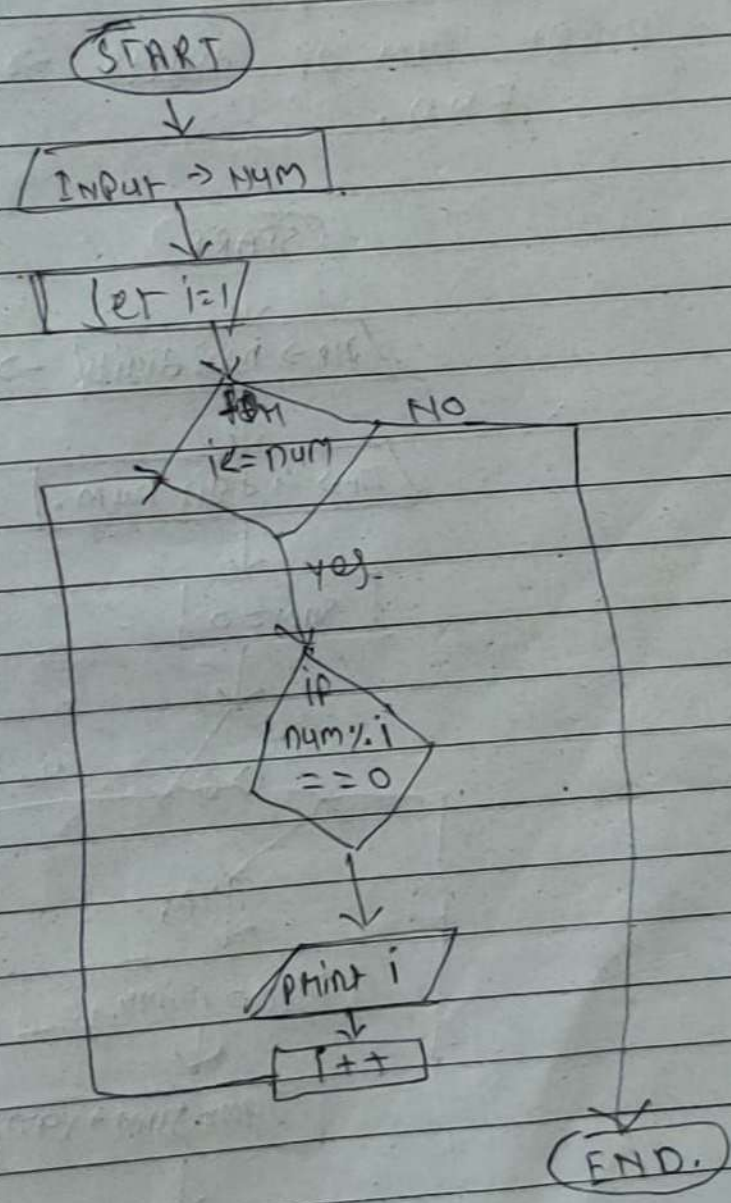 START
INPUT -> NUM
let i=1
for
i<=num
NO
yes.
if
num%i
==0
print i
i++
END.